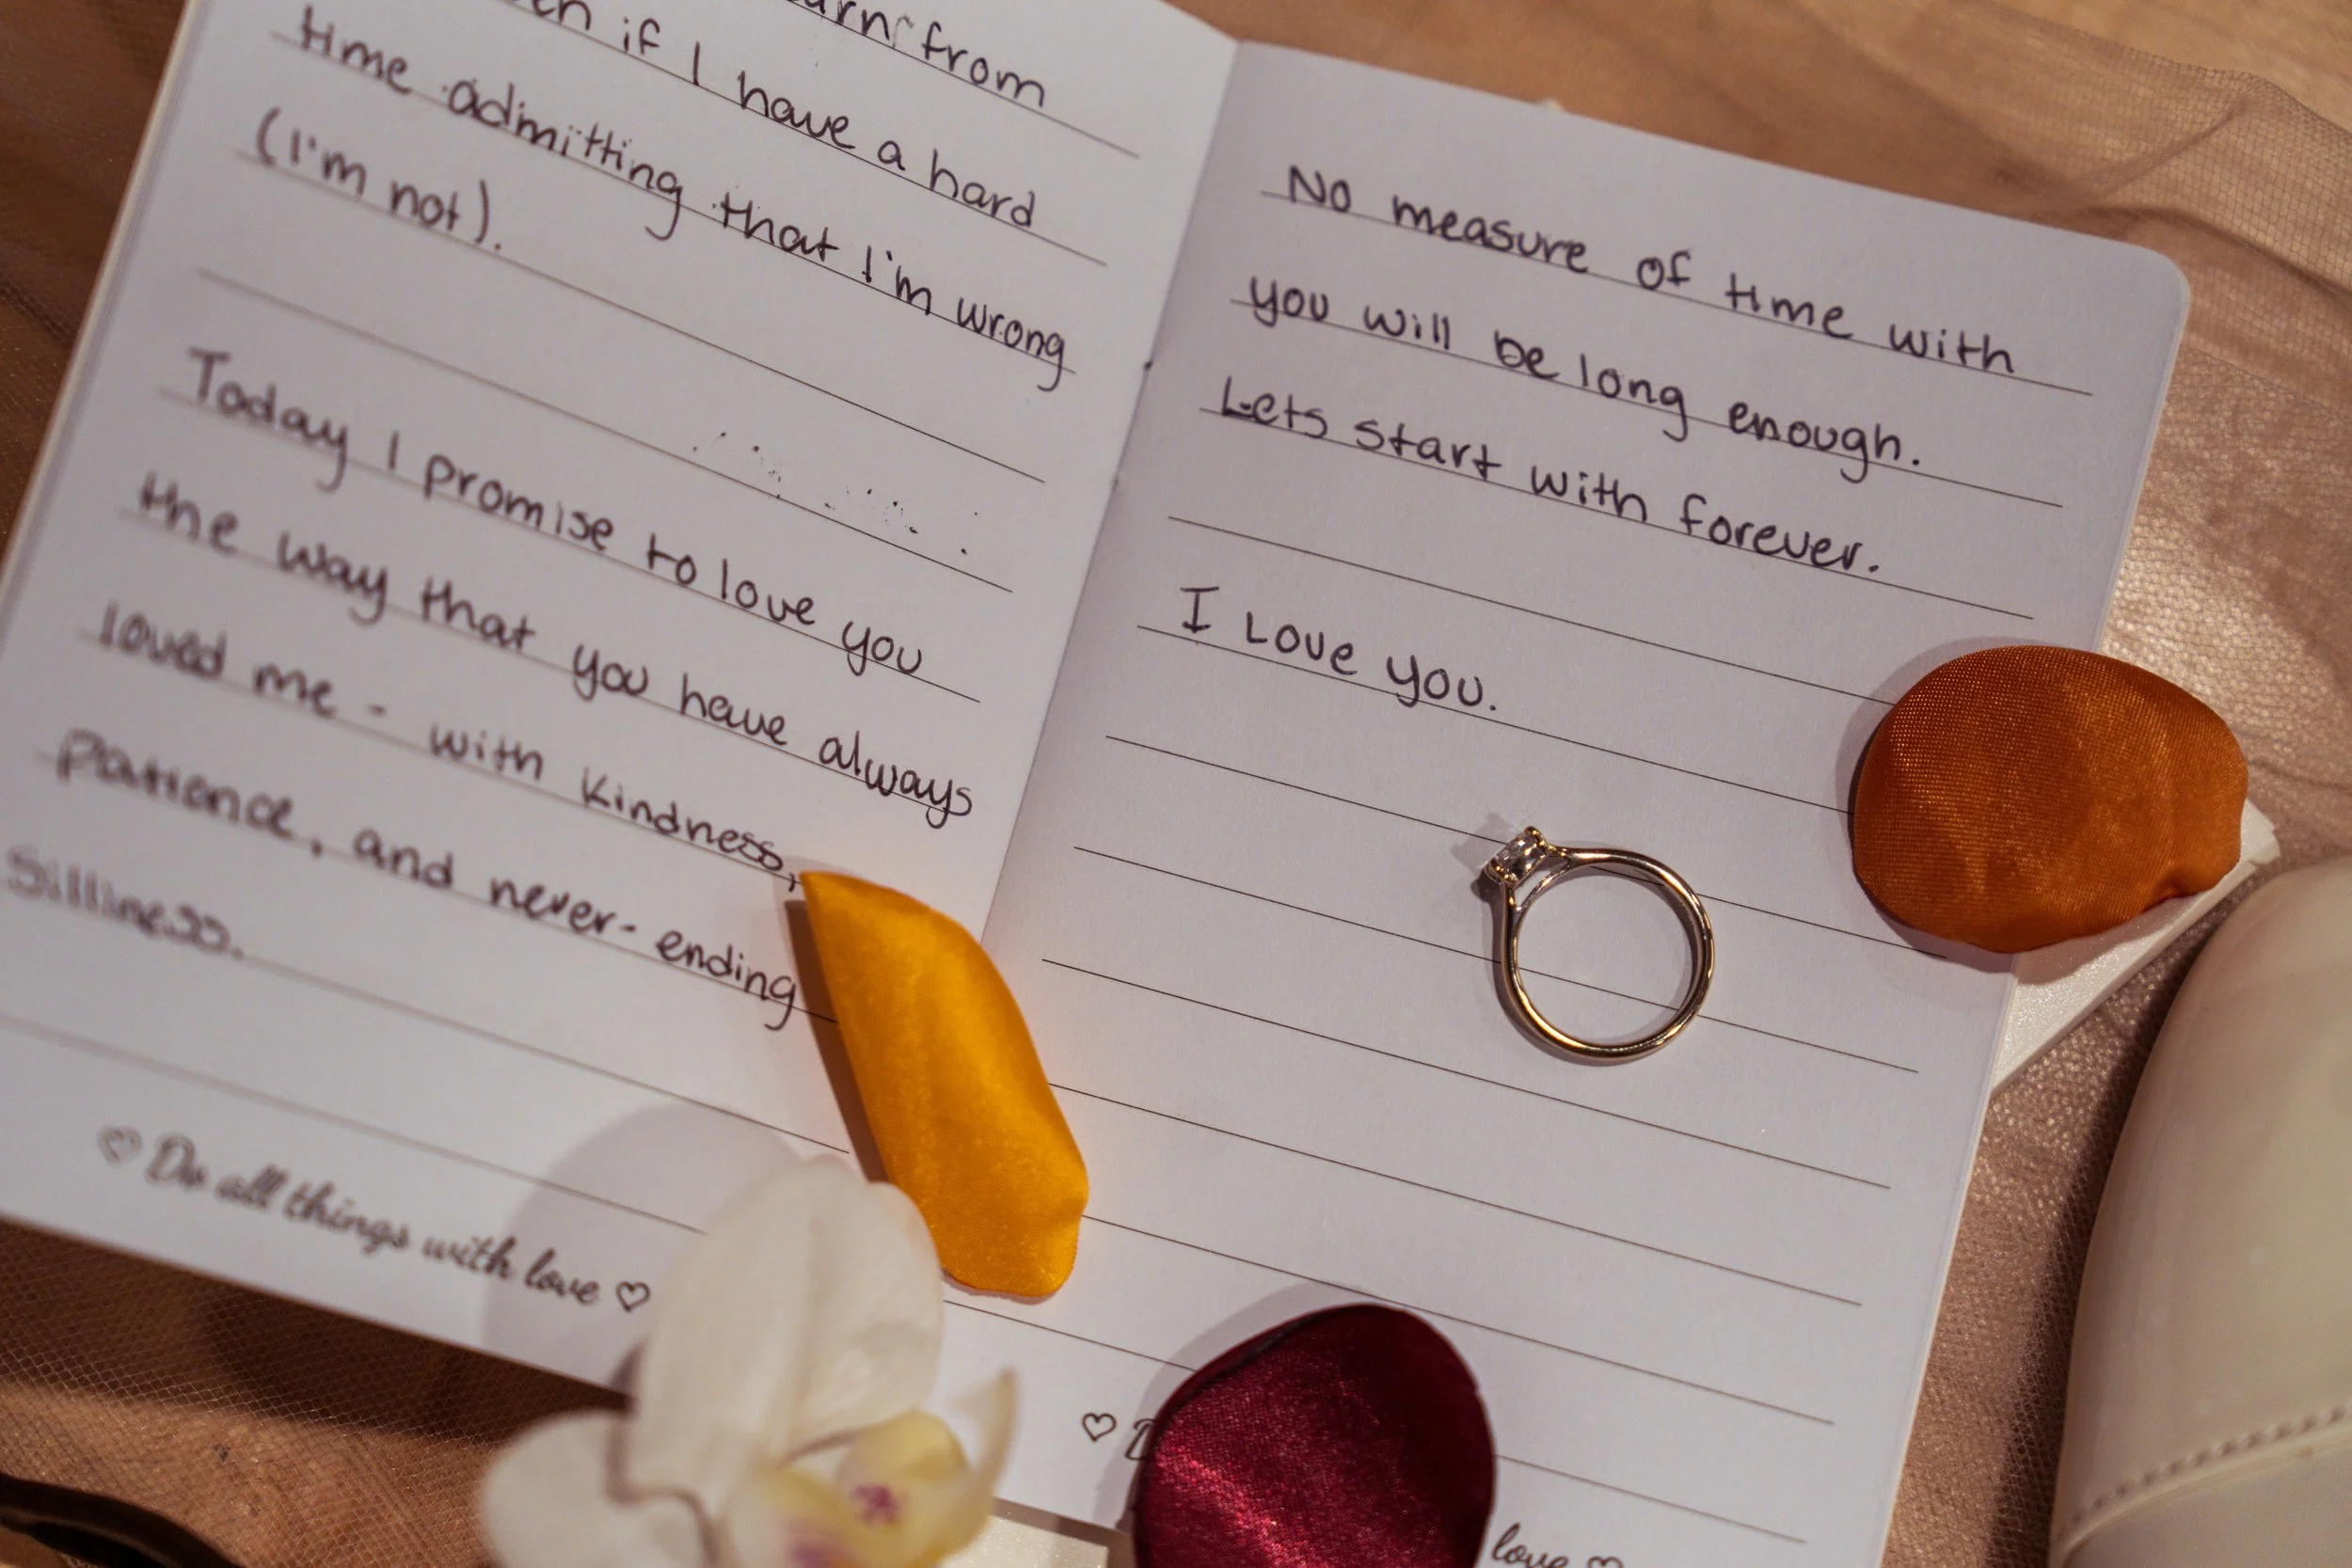 from
if I have a hard
time admitting that I'm wrong
(I'm not).
Today I promise to love you
the way that you have always
loved me - with kindness,
patience, and never-ending
silliness.
♡ Do all things with love ♡
No measure of time with
you will be long enough.
Lets start with forever.
I Love you.
♡
love ♡